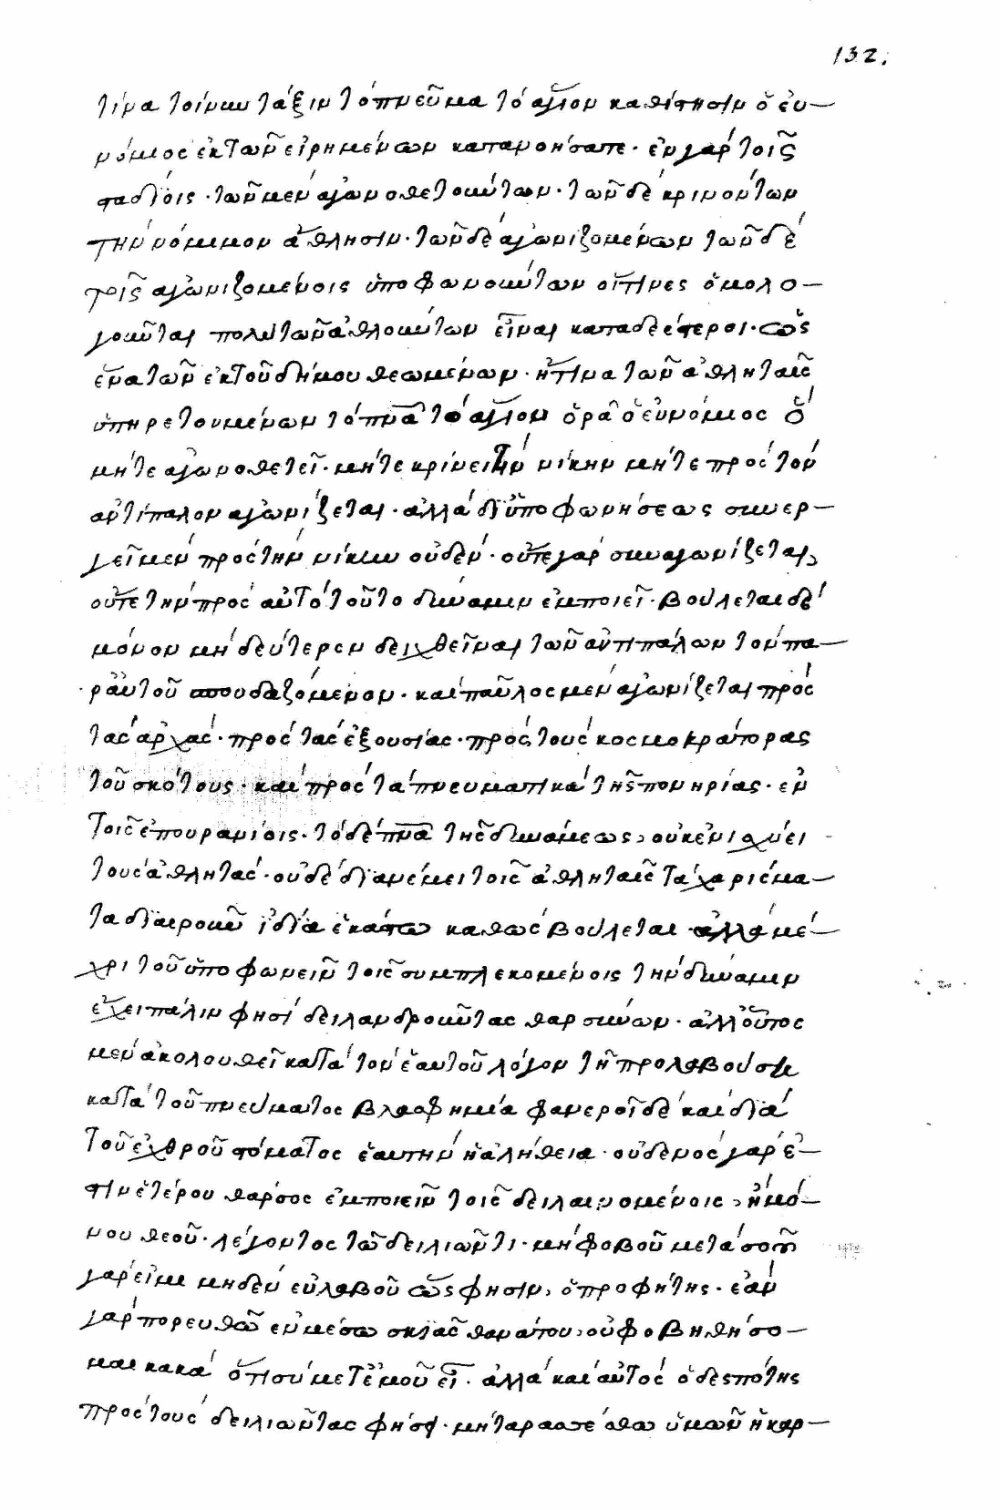 132.
τίνα τοίνυν τάξιν τὸ πνεῦμα τὸ ἅγιον καθίστησιν ὁ εὐ—
νόμιος ἐκ τῶν εἰρημένων κατανοήσατε· ἐν γὰρ τοῖς
σταδίοις· τῶν μὲν ἀγωνοθετούντων· τῶν δὲ κρινόντων
τὴν νόμιμον ἄθλησιν· τῶν δὲ ἀγωνιζομένων τῶν δὲ
τοῖς ἀγωνιζομένοις ὑποφωνούντων οἵτινες ὁμολο—
γοῦνται πολὺ τῶν ἀθλούντων εἶναι καταδεέστεροι· ὡς
ἕνα τῶν ἐκ τοῦ δήμου θεωμένων· ἤ τινα τῶν ἀθληταῖς
ὑπηρετουμένων τὸ πνα τὸ ἅγιον ὁρᾶ ὁ εὐνόμιος ὃ
μήτε ἀγωνοθετεῖ· μήτε κρίνει τὴν νίκην μήτε πρὸς τὸν
ἀντίπαλον ἀγωνίζεται· ἀλλὰ δι ὑποφωνήσεως συνερ—
γεῖ μὲν πρὸς τὴν νίκην οὐδέν· οὔτε γὰρ συναγωνίζεται,
οὔτε τὴν πρὸς αὐτὸ τοῦτο δύναμιν ἐμποιεῖ· βούλεται δὲ
μόνον μὴ δεύτερον δειχθεῖναι τῶν ἀντιπάλων τὸν πα—
ρ αὐτοῦ σπουδαζόμενον· καὶ παῦλος μὲν ἀγωνίζεται πρὸς
τὰς ἀρχάς· πρὸς τὰς ἐξουσίας· πρὸς τοὺς κοσμοκράτορας
τοῦ σκότους· καὶ πρὸς τὰ πνευματικὰ τῆς πονηρίας· ἐν
τοῖς ἐπουρανίοις· τὸ δὲ πνα τῆς δυνάμεως, οὐκ ἐνισχύει
τοὺς ἀθλητάς· οὐδὲ διανέμει τοῖς ἀθληταῖς τὰ χαρίσμα—
τα διαιροῦν ἰδία ἑκάστω καθὼς βούλεται· ἀλλὰ μέ—
χρι τοῦ ὑποφωνεῖν τοῖς συμπλεκομένοις τὴν δύναμιν
ἔχει πάλιν φησὶ δειλανδροῦντας θαρσύνων· ἀλλ οὗτος
μὲν ἀκολουθεῖ κατὰ τὸν ἑαυτοῦ λόγον τῇ προλαβούσῃ
κατὰ τοῦ πνεύματος βλασφημία φανεροῖ δὲ καὶ διὰ
τοῦ ἐχθροῦ στόματος ἑαυτὴν ἡ ἀλήθεια· οὐδενὸς γὰρ ἐ—
στιν ἑτέρου θάρσος ἐμποιεῖν τοῖς δειλαινομένοις, ἢ μό—
νου θεοῦ· λέγοντος τῶ δειλιῶντι· μὴ φοβοῦ μετὰ σοῦ
γάρ εἰμι μηδὲν εὐλαβοῦ ὥς φησιν, ὁ προφήτης· ἐὰν
γὰρ πορευθῶ ἐν μέσω σκιᾶς θανάτου, οὐ φοβηθήσο—
μαι κακὰ ὅτι σὺ μετ ἐμοῦ εἶ· ἀλλὰ καὶ αὐτὸς ὁ δεσπότης
πρὸς τοὺς δειλιῶντας φησι· μὴ ταρασσέσθω ὑμῶν ἡ καρ—